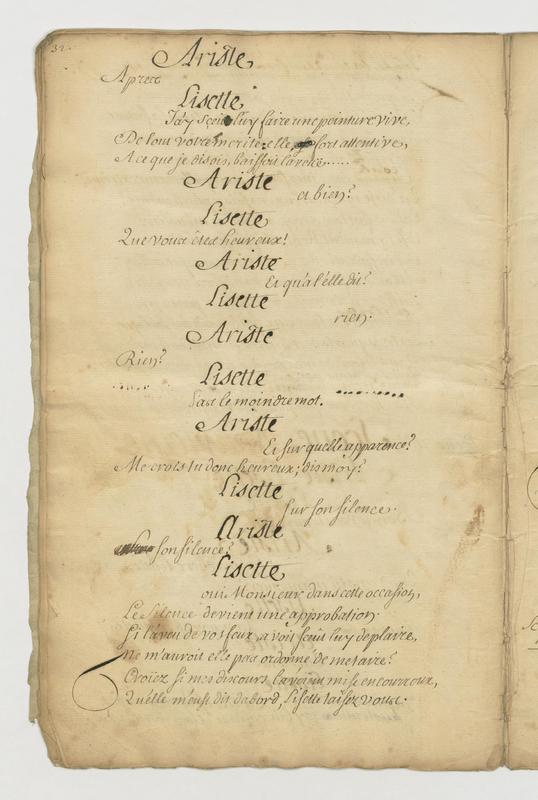 32.
Ariste
Apres
Lisette
J'ay sceu luy faire une peinture vive,
De tout votre merite: elle fort attentive,
A ce que je disois, baissoit la veüe.....
Ariste
et bien?
Lisette
Que vous étes heureux!
Ariste
Et qu'a t'elle dit?
Lisette
rien.
Ariste
Rien?
Lisette
Pas le moindre mot.
Ariste
Et sur quelle apparence?
Me crois tu donc heureux; dis moy?
Lisette
sur son silence.
Ariste
son silence?
Lisette
oui Monsieur dans cette occasion,
Le Silence devient une approbation.
Si l'aveu de vos feux, avoit sceü luy deplaire,
Ne m'auroit elle pas ordonné de me taire?
Croiez si mes discours l'avoient mise en courroux,
Qu'elle m'eust dit dabord, Lisette taisez vous.